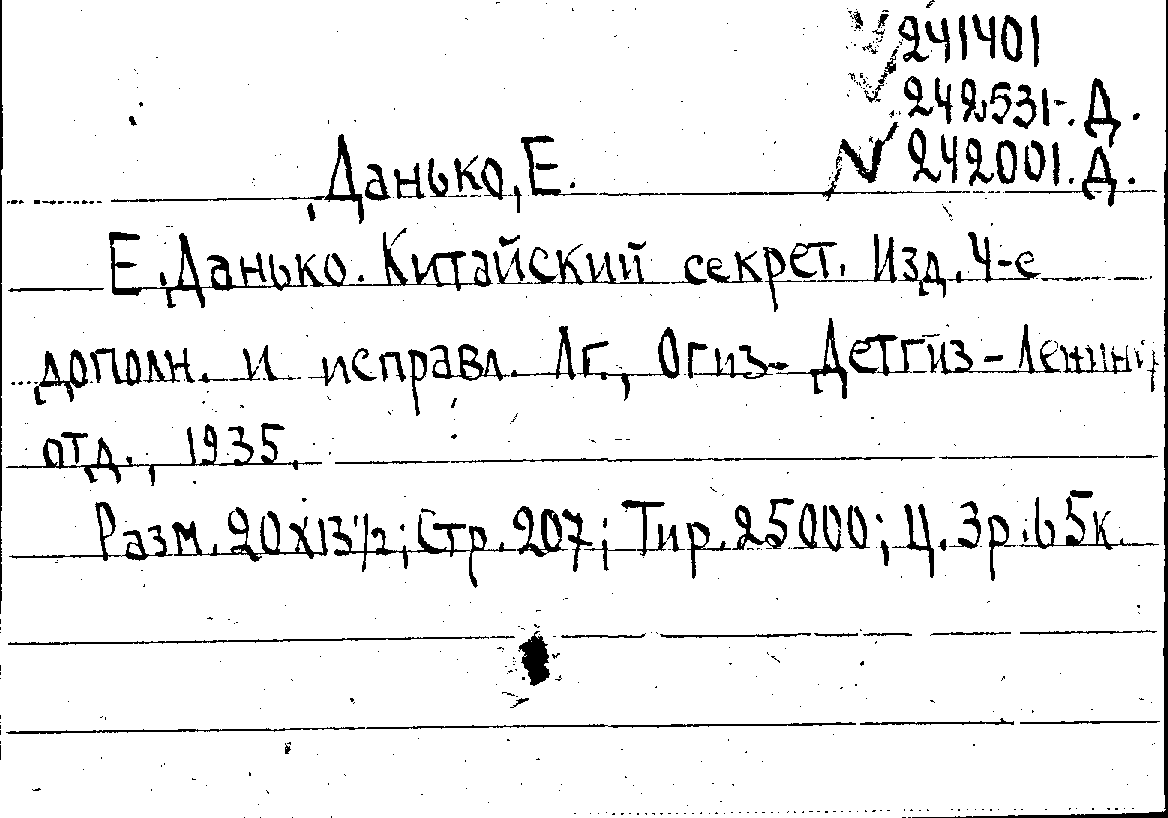 241401
242531-. Д.
242001. Д.
Данько, Е.
Е. Данько. Китайский секрет. Изд. 4-е
дополн. и исправл. Лг., Огиз - Детгиз - Ленингр
отд., 1935.
Разм. 20х13½; Стр. 207; Тир. 25000; Ц. 3р. 65к.